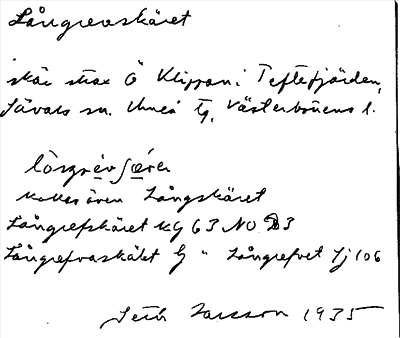 Långrevaskäret
skär strax Ö Klippan i Teftefjärden,
Sävars sn. Umeå tg, Västerbottens l.
lòŋgrèv
kallas även Långskäret
Långrefskäret kg 63 NO D3
Långrefvaskäret " Långrefvet Sj 106
Seth Larsson 1935